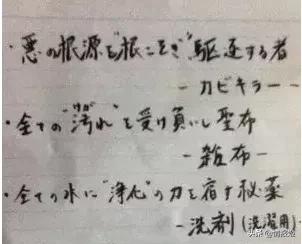 ・悪の根源を"根こそぎ"駆逐する者
－カビキラー－
・全ての"汚れ"を受け負いし聖布
けが
－雑布－
・全ての水に"浄化"の力を宿す秘薬
－洗剤(洗濯用)－